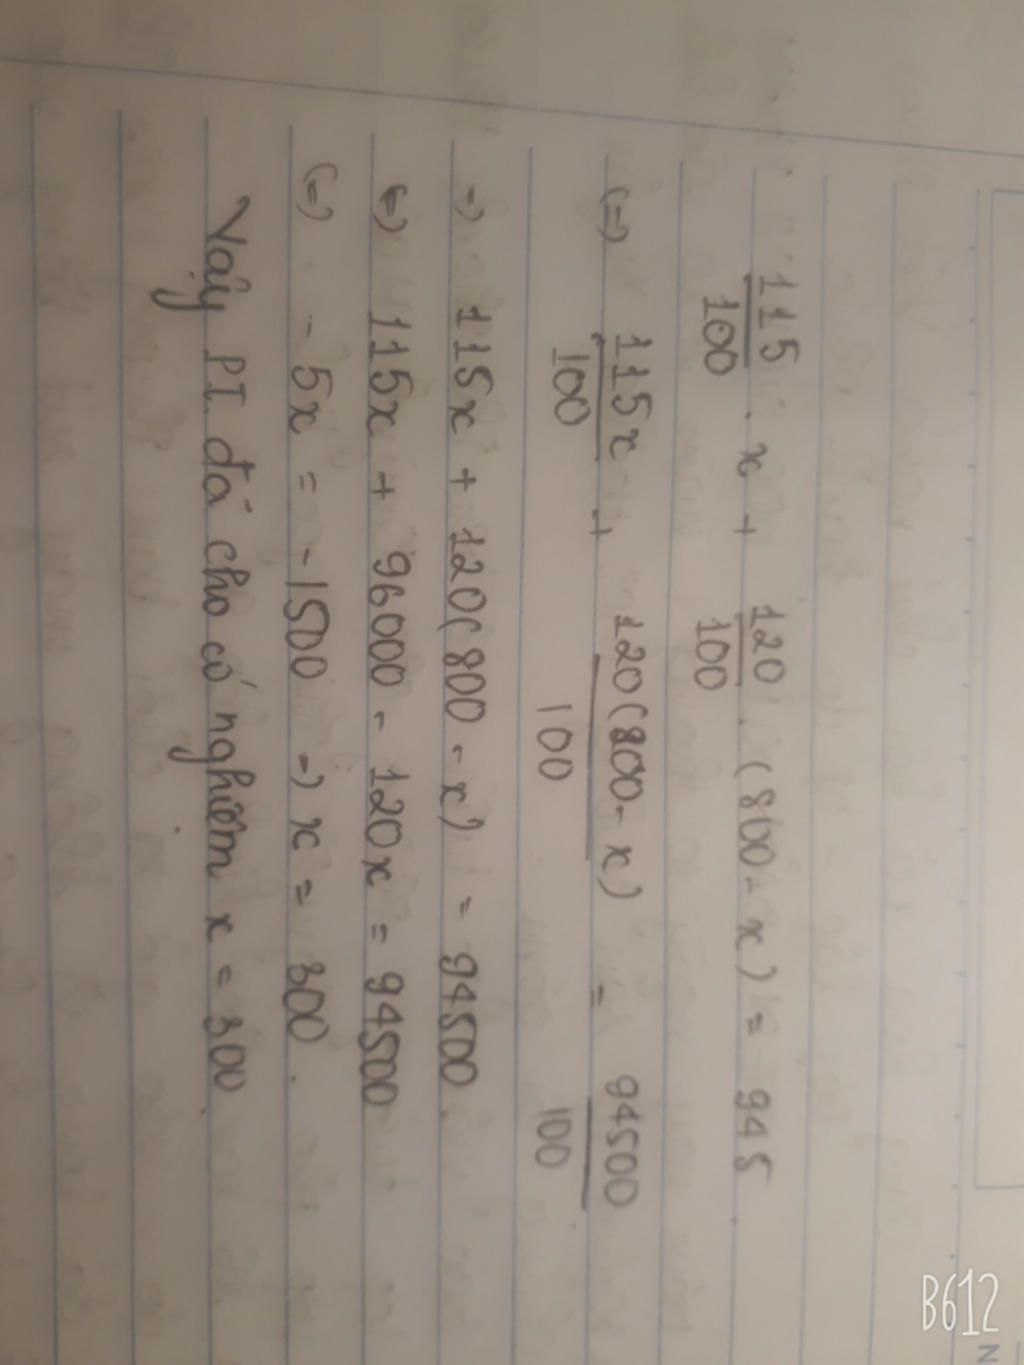 115/100 . x + 120/100 . (800 - x) = 945
(=) 115x/100 + 120(800 - x)/100 = 94500/100
-) 115x + 120(800 - x) = 94500.
(=) 115x + 96000 - 120x = 94500
(=) - 5x = -1500 -) x = 300.
Vậy PT đã cho có nghiệm x = 300.
B612
N